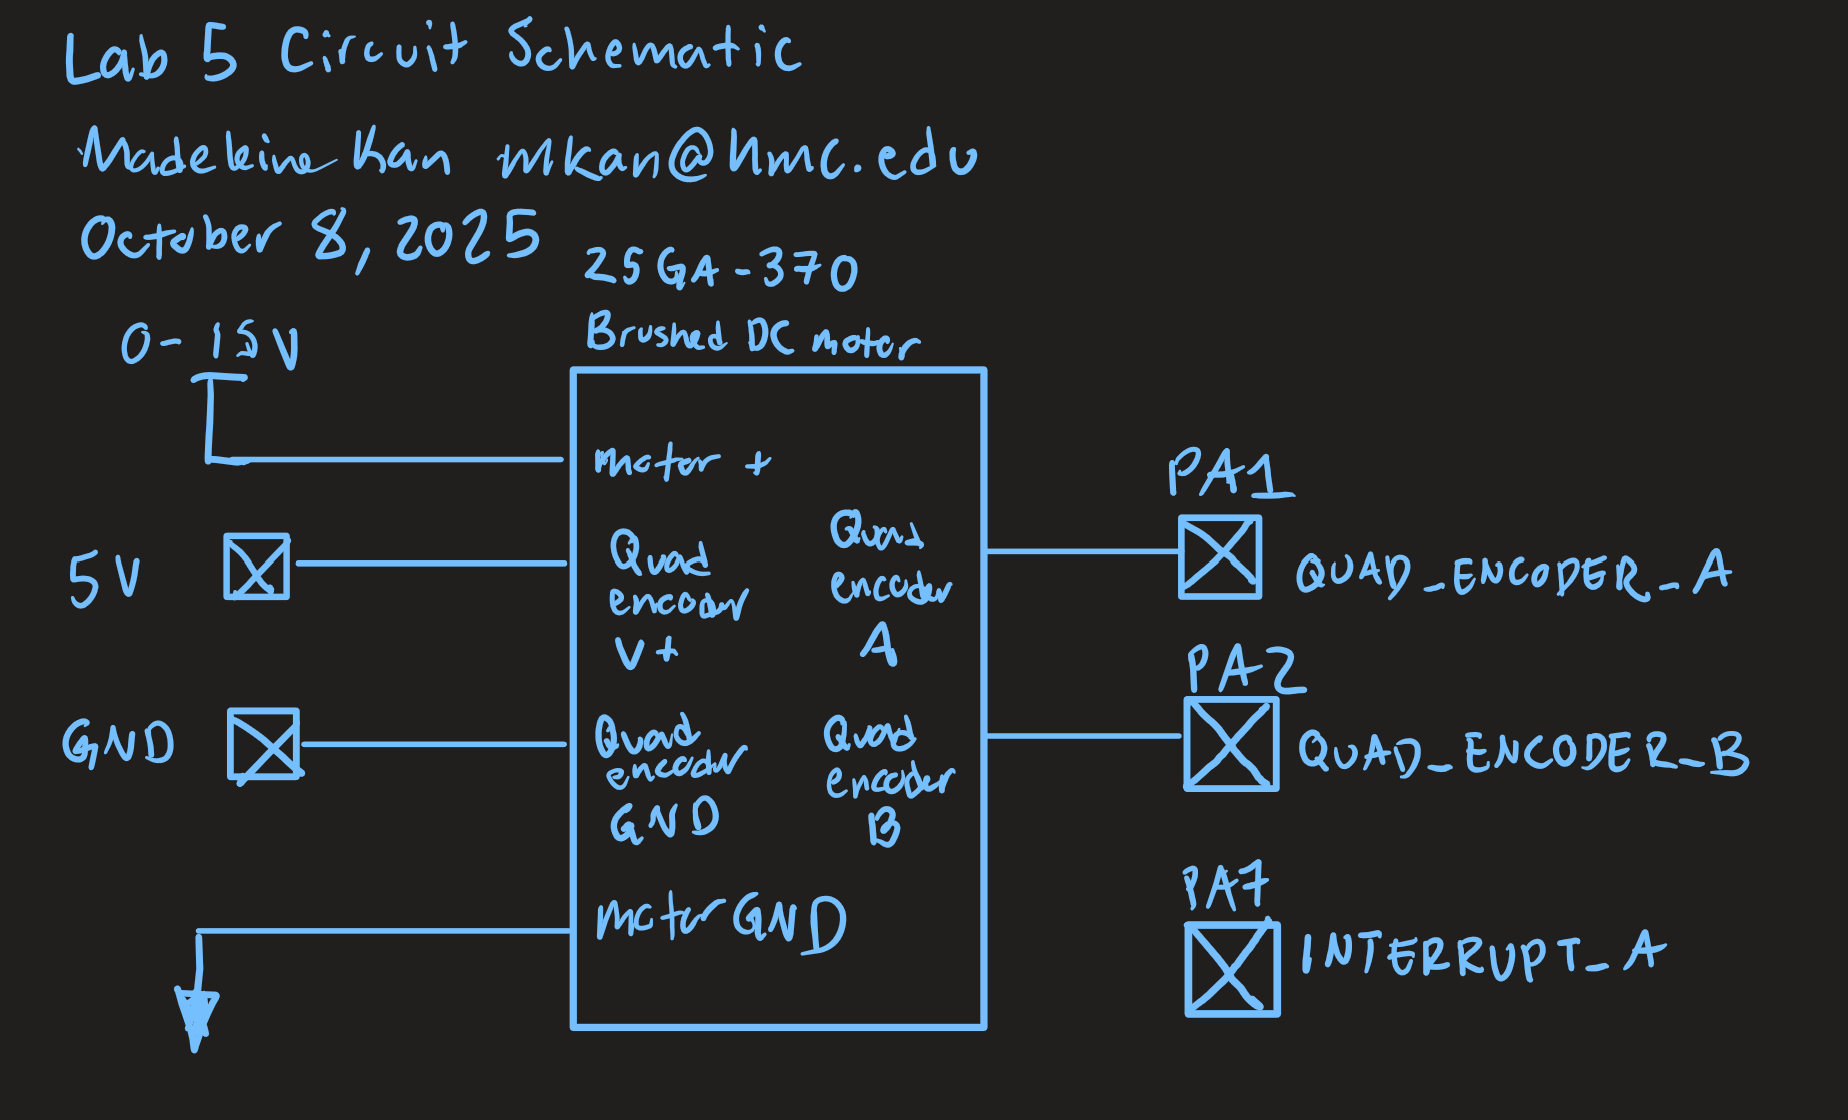 Lab 5 Circuit Schematic
Madeleine Kan mkan@hmc.edu
October 8, 2025
25GA-370
Brushed DC motor
0-15V
motor +
5V
Quad
encoder
V+
Quad
encoder
A
PA1
QUAD_ENCODER_A
GND
Quad
encoder
GND
Quad
encoder
B
PA2
QUAD_ENCODER_B
motor GND
PA7
INTERRUPT_A